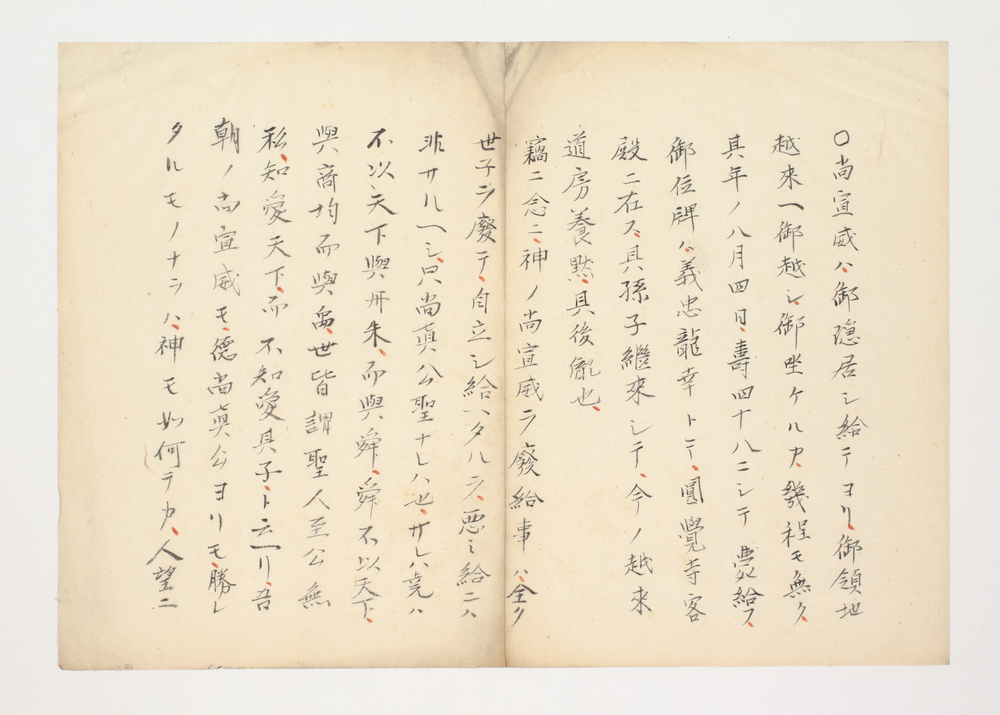 〇尚宣威ハ、御隠居シ給テヨリ、御領地
越來ヘ御越シ、御坐ケルカ、幾程モ無ク、
其年ノ八月四日、壽四十八ニシテ薨給フ、
御位牌ハ、義忠龍幸トテ、圓覺寺客
殿ニ在ス、其孫子繼來シテ、今ノ越來
道房養黙、其後胤也、
竊ニ念ニ、神ノ尚宣威ヲ廢給事ハ、全ク
世子ヲ廢テ、自立シ給ヘタルヲ、悪ミ給ニハ
非サルヘシ、只尚真公聖ナレハ也、サレハ堯ハ
不以天下與丹朱、而與舜、舜不以天下、
與商均而與禹、世皆謂聖人至公無
私、知愛天下、而不知愛其子、ト云ヘリ、吾
朝ノ尚宣威モ、德尚真公ヨリモ、勝レ
タルモノナラハ、神モ如何テカ、人望ニ